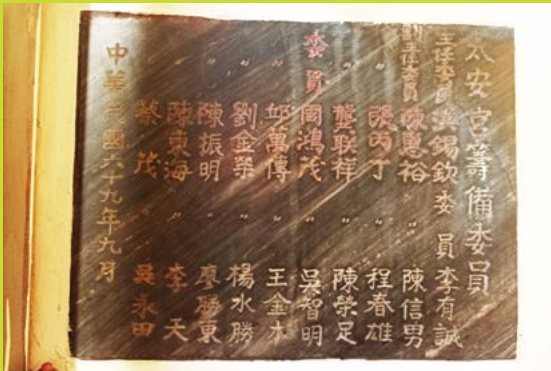 太安宮籌備委員
主任委員 錫欽 委員 李有誠
副主任委員 陳惠裕 〃 陳信男
〃 張丙丁 〃 程春雄
〃 龔联祥 〃 陳榮足
委員 周鴻茂 〃 吳智明
〃 邱萬傳 〃 王金木
〃 劉金榮 〃 楊水勝
〃 陳振明 〃 廖勝東
〃 陳東海 〃 李天
〃 蔡茂 〃 吳永田
中華民國六十九年九月